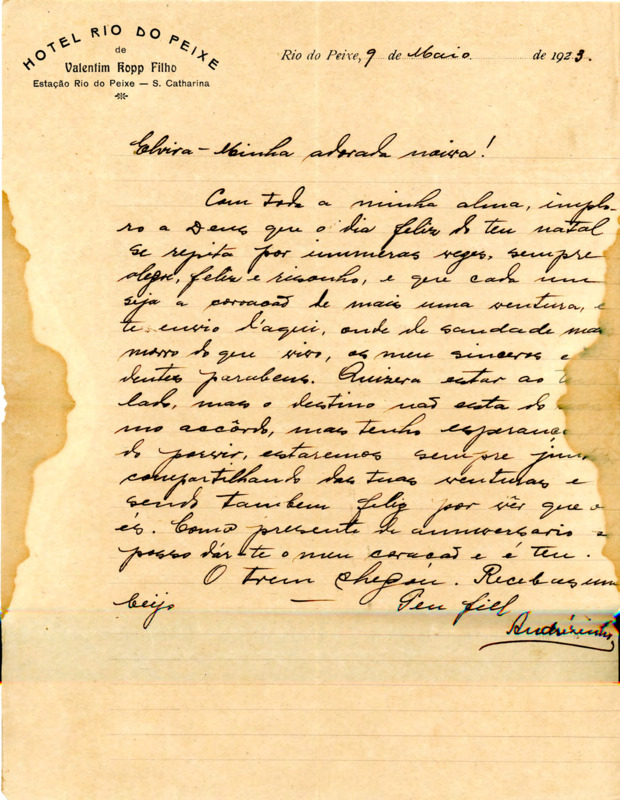 HOTEL RIO DO PEIXE
de
Valentim Ropp Filho
Estação Rio do Peixe — S. Catharina
Rio do Peixe, 9 de Maio de 1923.
Elvira – Minha adorada noiva!
Com toda a minha alma, implo-
ro a Deus que o dia feliz do teu natal
se repita por innumeras vezes, sempre
alegre, feliz e risonho, e que cada um
seja a coroacão de mais uma ventura, e
te envio d'aqui, onde de saudade mais
morro do que vivo, os meu sinceros e
dentes parabens. Quizera estar ao
lado, mas o destino não esta do
mo accôrdo, mas tenho esperanca
do porvir, estaremos sempre jun
compartilhando das tuas venturas e
sendo tambem feliz por vêr que o
és. Como presente de anniversario
posso dár-te o meu coracaõ e é teu.
O trem chegou. Recebas um
beijo — Teu fiel
Andrézinho,